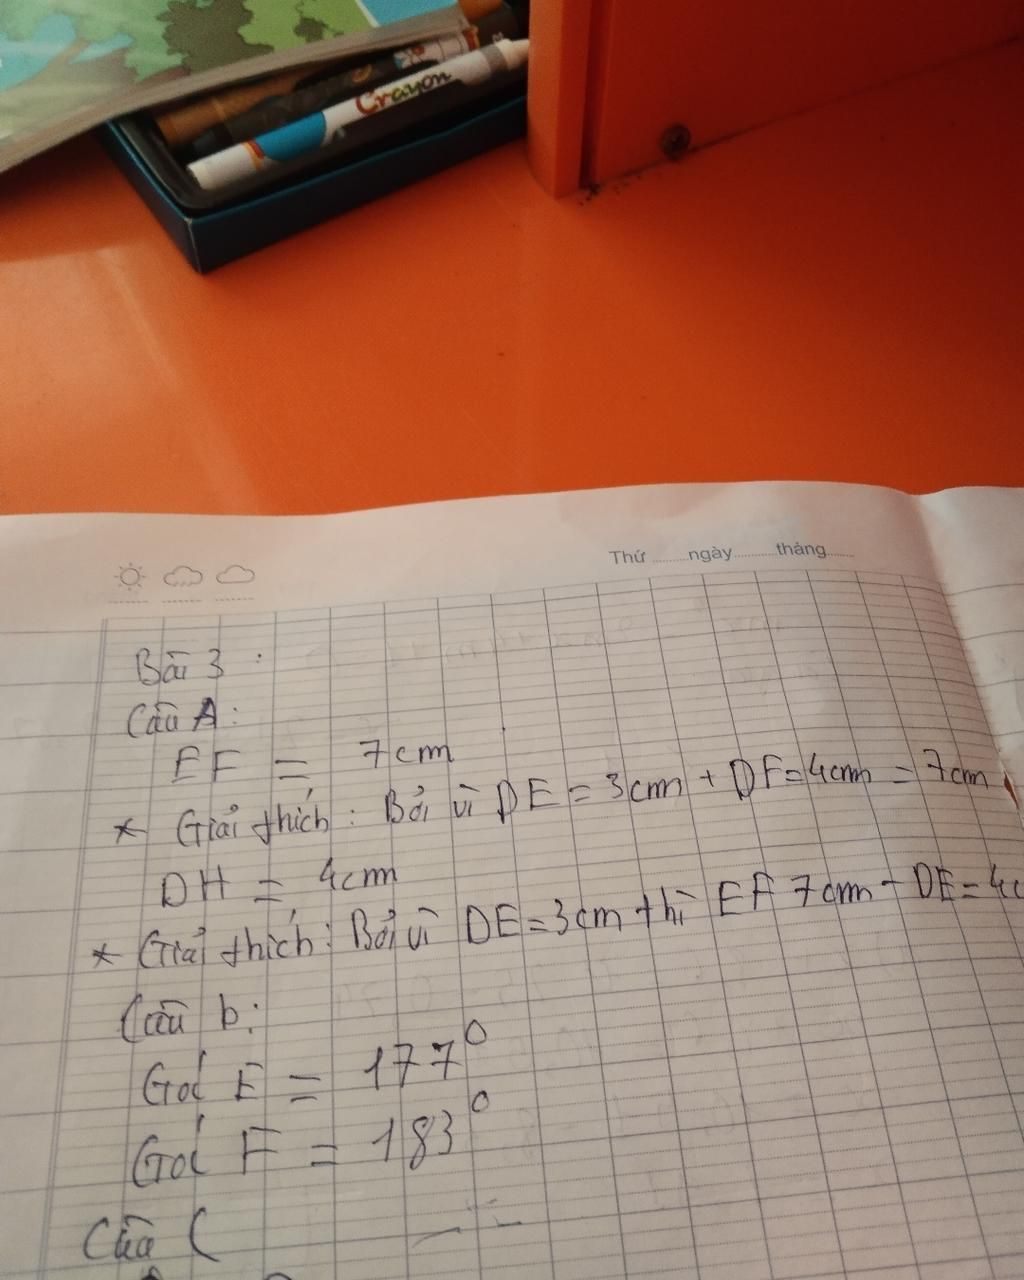 Crayon
Thứ ........ngày.........tháng......
Bài 3 :
Câu A:
EF = 7cm
* Giải thích : Bởi vì DE = 3cm + DF = 4cm = 7cm
DH = 4cm
* Giải thích : Bởi vì DE = 3cm thì EF 7cm - DE = 4c
Câu b:
Góc E = 177°
Góc F = 183°
Câu C